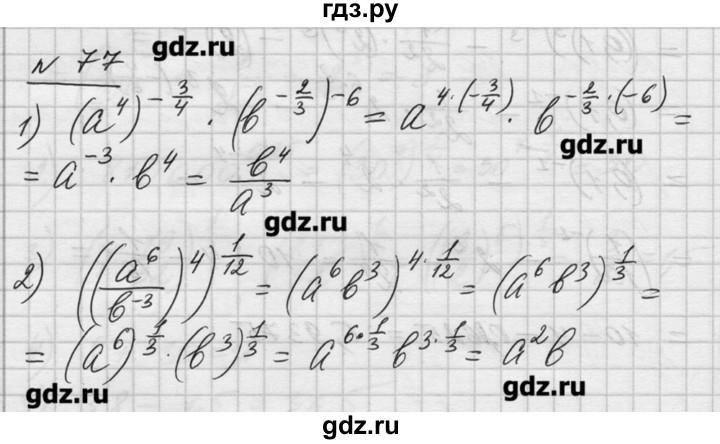 гдз.ру
gdz.ru
№ 77
1) (a⁴)^(-3/4) · (b^(-2/3))^(-6) = a^(4·(-3/4)) · b^(-2/3·(-6)) =
gdz.ru
= a^(-3) · b⁴ = b⁴/a³
gdz.ru
2) ((a⁶/b^(-3))⁴)^(1/12) = (a⁶b³)^(4·1/12) = (a⁶b³)^(1/3) =
= (a⁶)^(1/3) · (b³)^(1/3) = a^(6·1/3) b^(3·1/3) = a²b
gdz.ru gdz.ru
gdz.ru